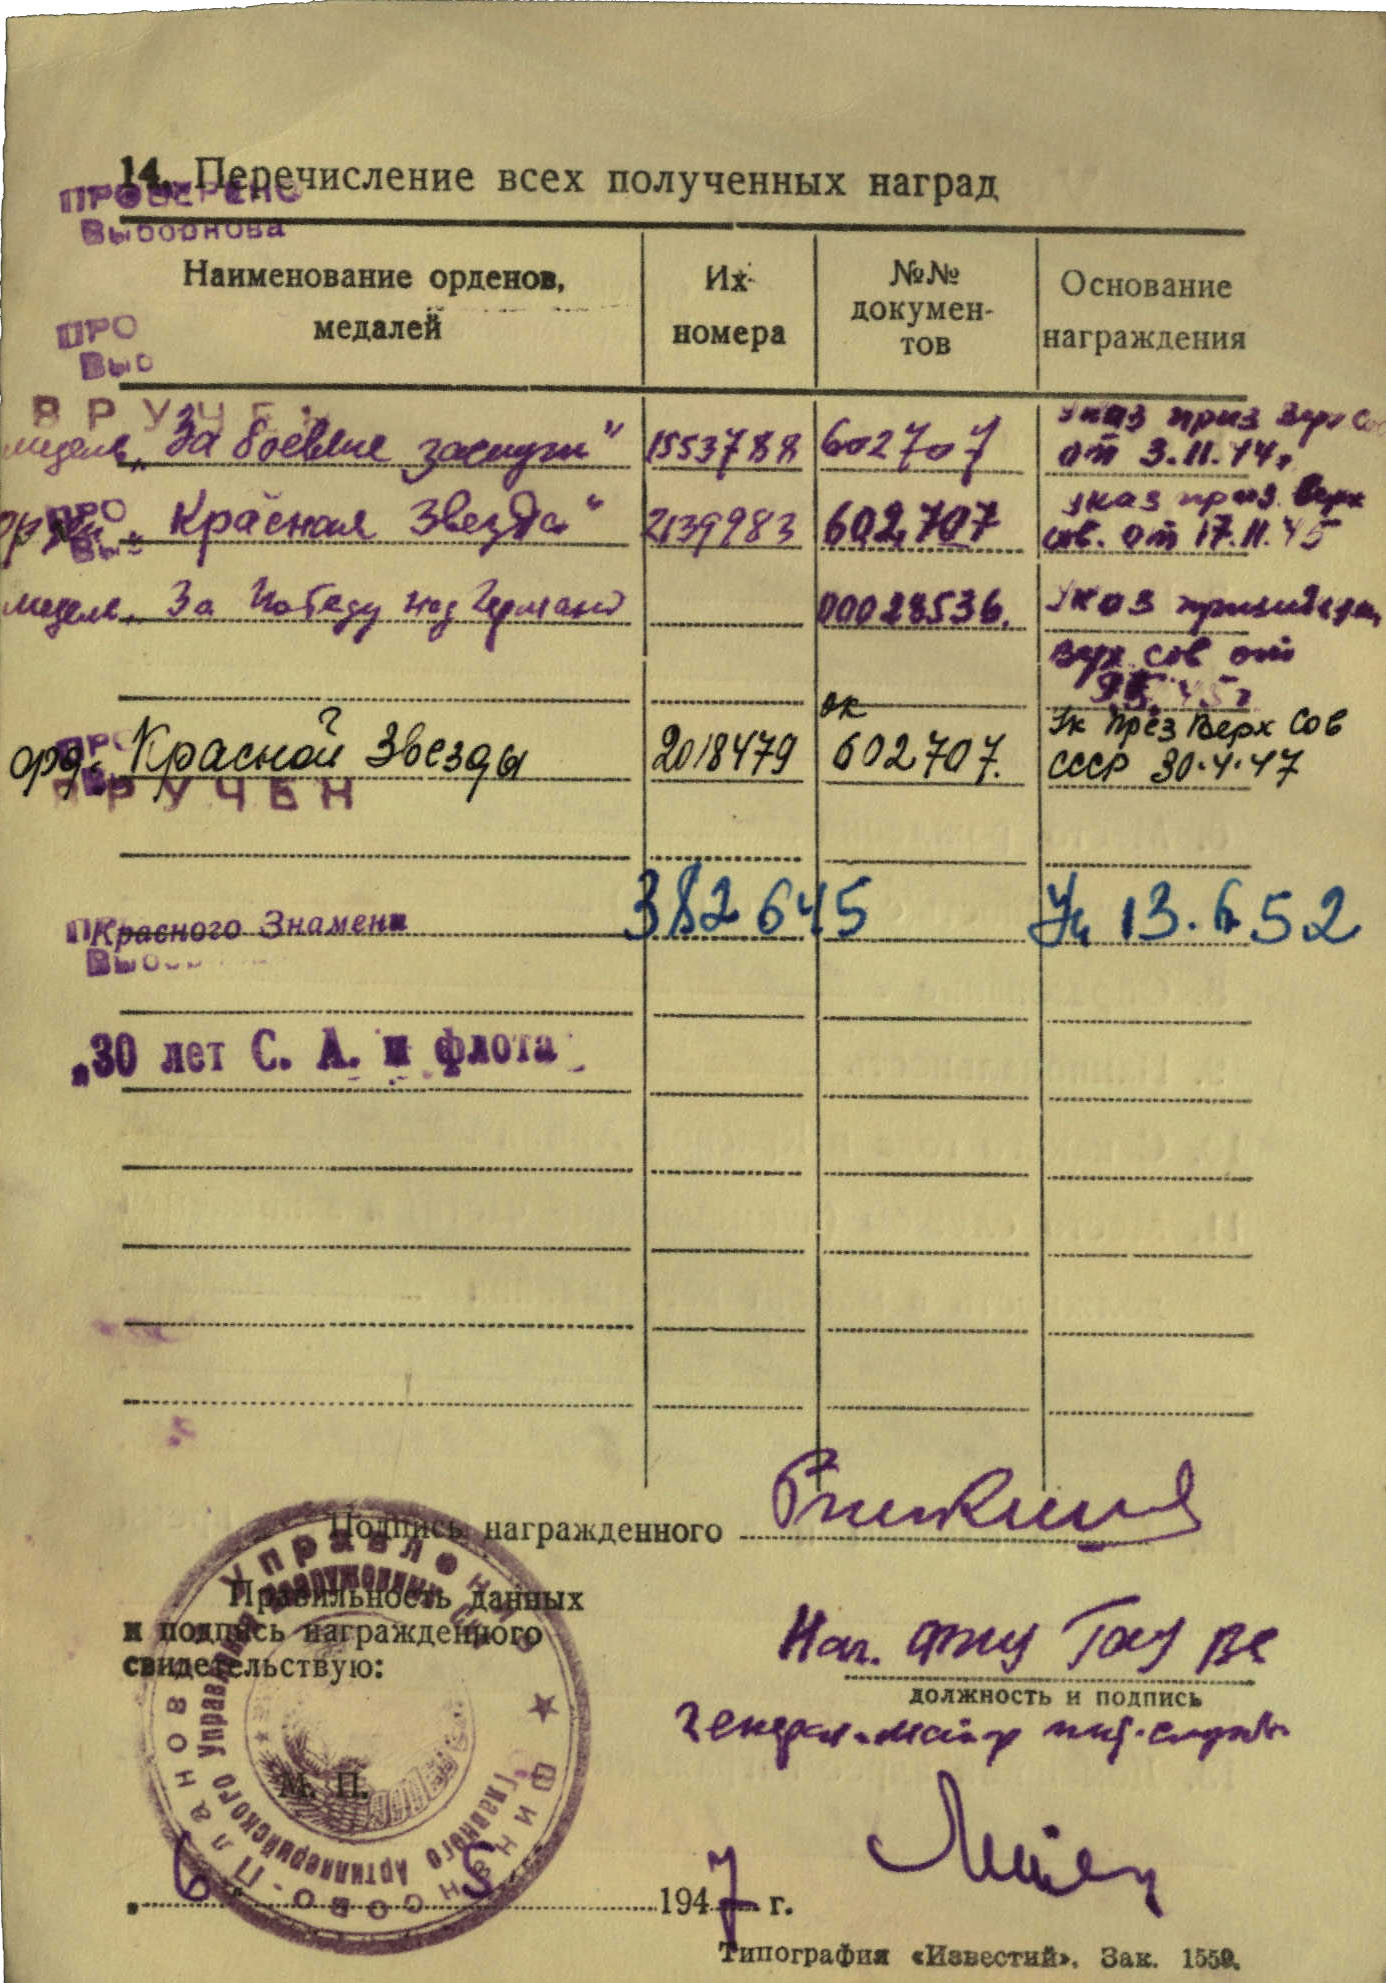 14. Перечисление всех полученных наград
ПРОВЕРЕНО
Выборнова
Наименование орденов, медалей
Их номера
№№ докумен-тов
Основание награждения
ПРО
Выб
ВРУЧЕН
медаль „За боевые заслуги“ 1553788 602707 Указ през Верх Сов
от 3.11.44г
ПРО
„Красная Звезда“ 2139983 602707 Указ през. Верх
сов. от 17.11.45
медаль „За Победу над Германи 00028536. Указ
Верх. Сов от
орд. Красной Звезды 2018479 ок 602707. Ук През Верх Сов
СССР 30.4.47
ВРУЧЕН
Красного Знамени 382645 Ук 13.6.52
„30 лет С. А. и флота
Подпись награжденного
Правильность данных
и подпись награжденного
свидетельствую:
Нач. ФПУ ГАУ ВС
должность и подпись
генерал-майор инт. службы
М. П.
Финансово-Планов Управлен
Главного Артиллерийского Управления Вооруженных
„ 6 “ 5 1947 г.
Типография «Известий». Зак. 1559.